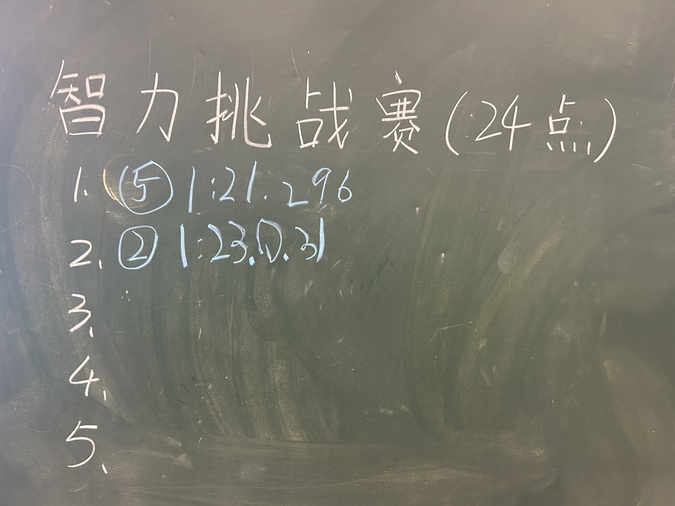 智力挑战赛(24点)
1. ⑤ 1:21.296
2. ② 1:23.0.31
3.
4.
5.